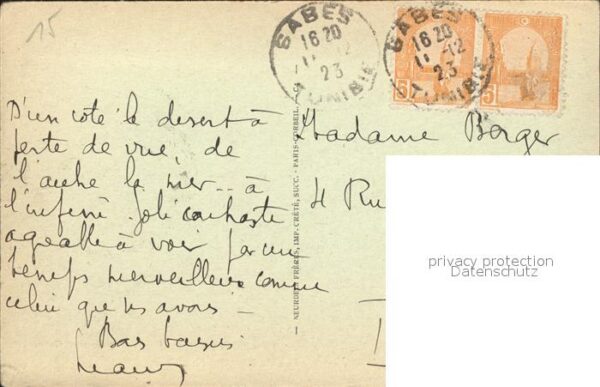 15
GABES
16 20
11-12
23
TUNISIE
GABES
16 20
11-12
23
TUNISIE
D'un coté le desert à
perte de vue, de
l'autre la mer.. à
l'infini. Joli contraste
agréable à voir par un
temps merveilleux comme
celui que ns avons -
Bas baisers
Madame Berger
4 Ru
NEURDEIN FRÈRES, IMP. CRÉTÉ, SUCC. - PARIS-CORBEIL.
privacy protection
Datenschutz